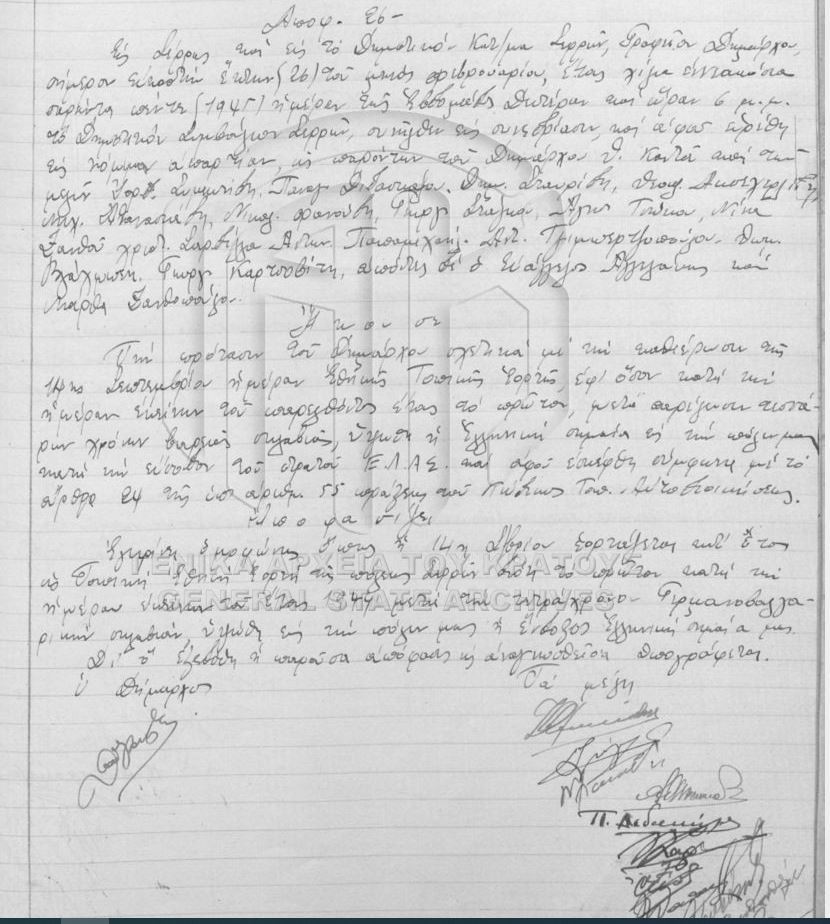 Αποφ. 26-
Εις Σέρρας και εις το Δημοτικόν Κατ/μα Σερρών, Γραφείον Δημάρχου,
σήμερον εικοστήν έκτην (26) του μηνός Φεβρουαρίου, έτους χίλια εννιακόσια
σαράντα πέντε (1945) ημέραν της εβδομάδος Δευτέραν και ώραν 6 μ.μ.
το Δημοτικόν Συμβούλιον Σερρών, συνήλθεν εις συνεδρίασιν, και αφού ευρέθη
εις νόμιμον απαρτίαν, ως παρόντων του Δημάρχου Θ. και των
μελών Παναγ. Δημ. Σταυρίδη, Θεοφ.
Μιχ. Αθανασιάδη, Νικολ. Γεωργ. Νίκα
Ξανθού Χριστ. Αντων. Αντ.
Γεωργ. Καρτσοβίτη, απόντες δε ο Ευάγγελος και
Μαρθα Ξανθοπούλου.
Ή κ ο υ σ ε
Την πρότασιν του Δημάρχου σχετικά με την καθιέρωσιν της
14ης Σεπτεμβρίου ημέραν Εθνικής Τοπικής Εορτής, εφ' όσον κατά την
ημέραν εκείνην του παρελθόντος έτους το πρώτον, μετά παρέλευσιν τεσσά-
ρων χρόνων βαρειάς σκλαβιάς, υψώθη η Ελληνική σημαία εις την πόλιν μας
κατά την είσοδον του στρατού Ε.Λ.Α.Σ. και αφού εσκέφθη σύμφωνα με το
άρθρο 24 της υπ' αριθμ. 55 πράξεως του Κώδικος Τοπ. Αυτοδιοικήσεως.
Α π ο φ α σ ί ζ ε ι
Εγκρίνει ομοφώνως όπως η 14η Σ/βρίου εορτάζεται κατ' έτος
ως Τοπική Εθνική Εορτή της πόλεως Σερρών διότι το πρώτον κατά την
ημέραν εκείνην το έτος 1944 μετά την τετράχρονον Γερμανοβουλγα-
ρικήν σκλαβιάν, υψώθη εις την πόλιν μας η ένδοξος Ελληνική σημαία μας.
Δι' ό εξεδόθη η παρούσα απόφασις ως αναγνωσθείσα υπογράφεται.
Ο Δήμαρχος Τα μέλη
Π.
ΓΕΝΙΚΑ ΑΡΧΕΙΑ ΤΟΥ ΚΡΑΤΟΥΣ
GENERAL STATE ARCHIVES